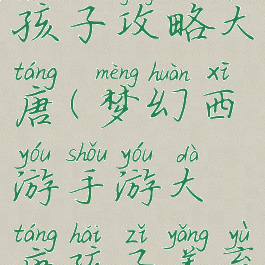 孩子攻略大
táng mèng huàn xī
唐(梦幻西
yóu shǒu yóu dà
游手游大
táng hái zǐ yǎng yù
唐孩子养育